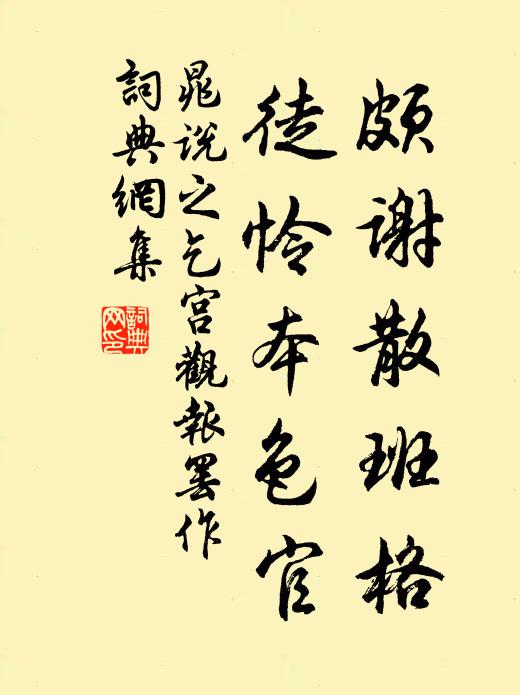 頗謝散班格
徒怜本色官
晁說之乞宮觀報罷作
詞典網集
詞典網印